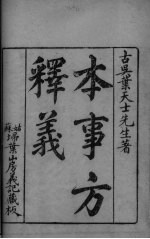 古吳葉天士先生著
本事方
釋義
姑蘇掃葉山房義記藏板